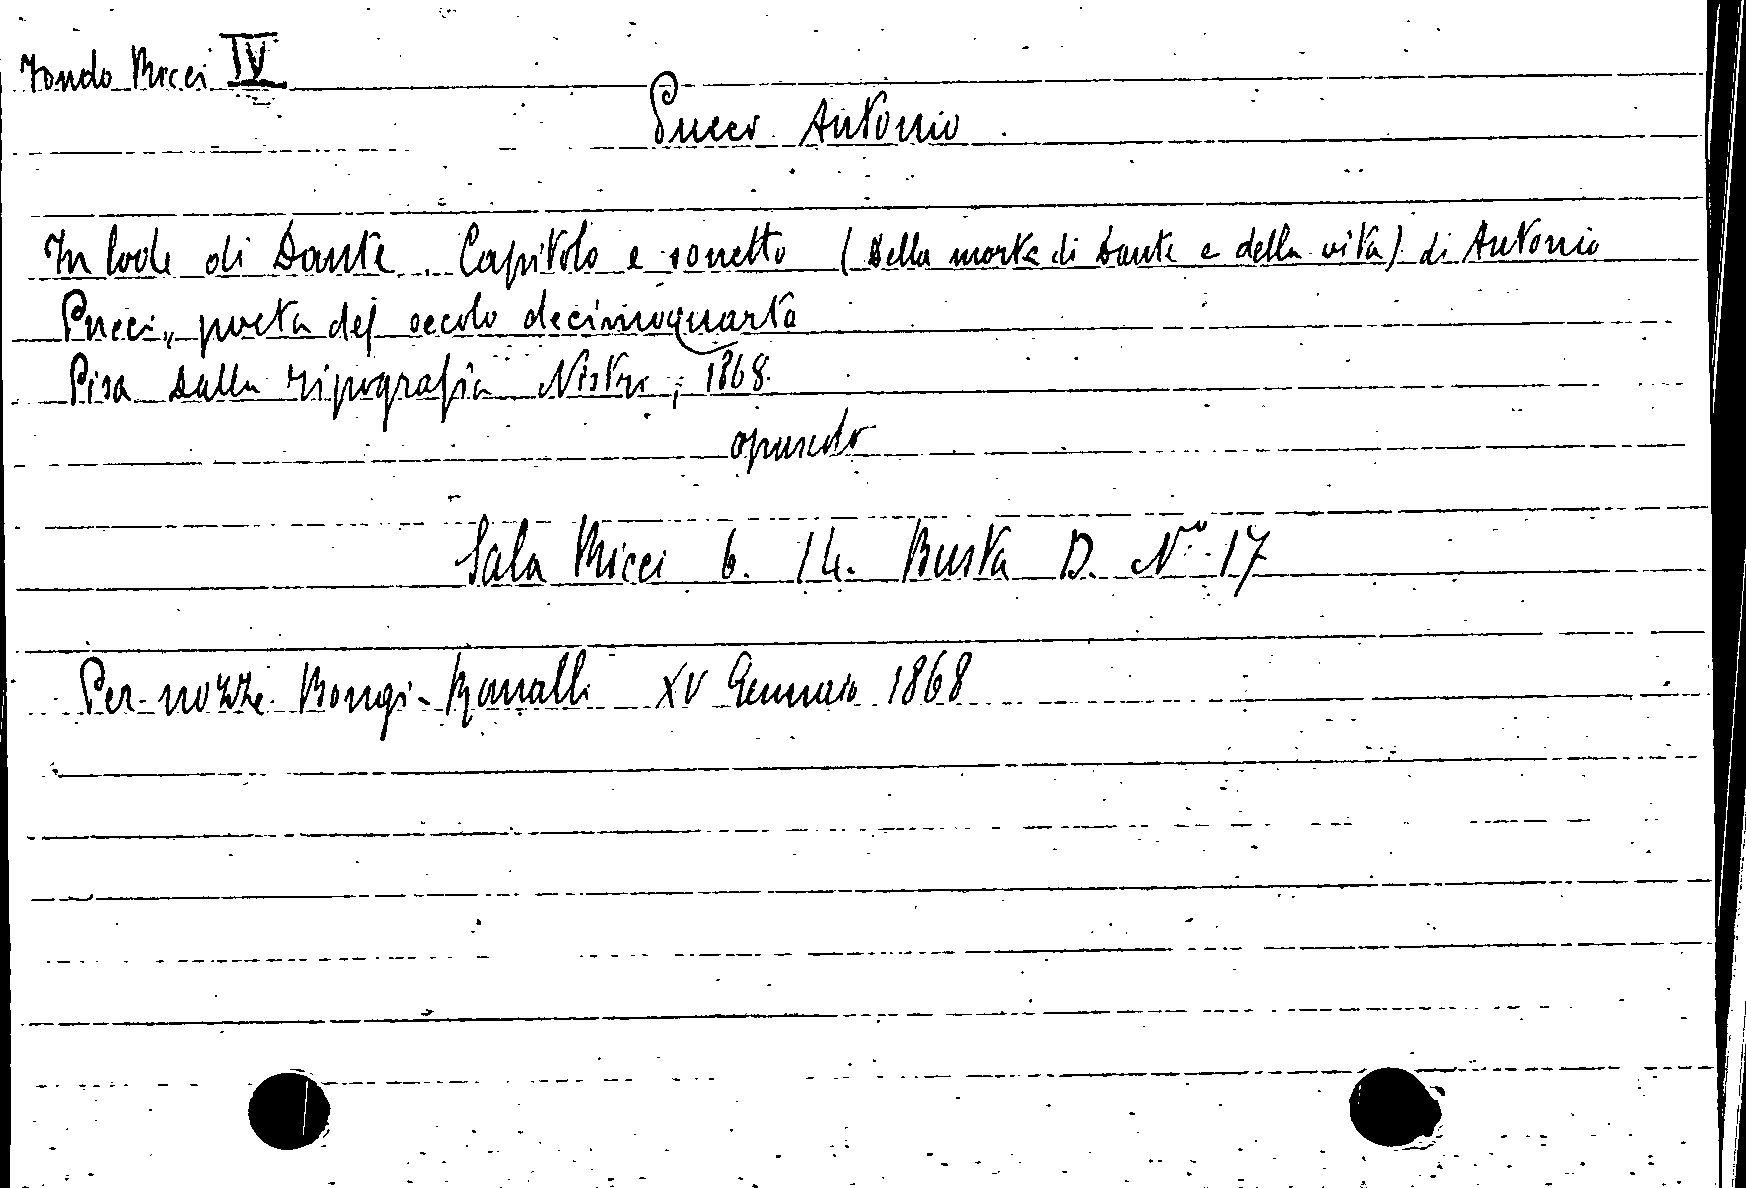 Fondo Ricci IV
Pucci Antonio.
In lode di Dante. Capitolo e sonetto (Della morte di Dante e della vita) di Antonio
Pucci, poeta del secolo decimoquarto
Pisa dalla tipografia Nistri, 1868.
opuscolo
Sala Ricci 6. 14. Busta D. No. 17
Per nozze Bongi-Ranalli XV Gennaio 1868